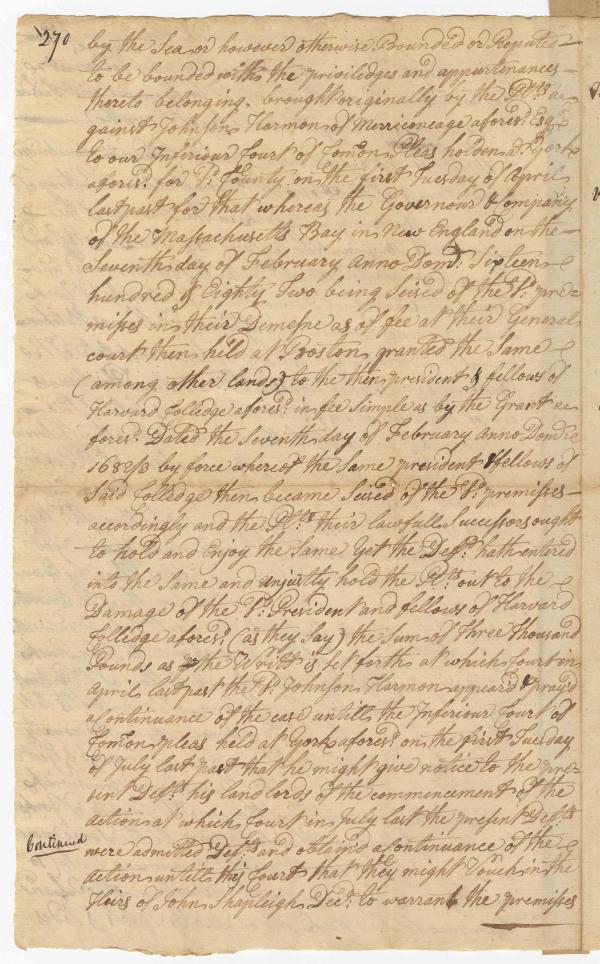 270
by the Sea or however otherwise Bounded or Reputed
to be bounded with the priviledges and appurtenances
thereto belonging, brought originally by the Plts. a-
gainst Johnson Harmon of Merriconeage aforesd. Esqr.
to our Inferiour Court of Common Pleas holden at York
aforesd. for sd. County on the first Tuesday of April
last past for that whereas the Governour & Company
of the Massachusetts Bay in New England on the
Seventh day of February Anno Dom: Sixteen
hundred & Eighty Two being Seised of the sd. pre-
misses in their Demesne as of fee at their General
court then held at Boston granted the Same
(among other lands) to the then president & fellows of
Harvard Colledge aforesd. in fee simple as by the Grant a-
foresd. Dated the Seventh day of February Anno Domi
1682/3 by force whereof the Same president & fellows of
Said Colledge then became Seised of the sd. premisses
accordingly and the Plts. their lawfull Successors ought
to hold and Enjoy the Same Yet the Deft. hath entered
into the Same and unjustly hold the Plts. out to the
Damage of the sd. President and fellows of Harvard
Colledge aforesd. (as they Say) the Sum of Three thousand
Pounds as the Writt is set forth at which Court in
April last past the sd. Johnson Harmon appear'd & pray'd
a Continuance of the case untill the Inferiour Court of
Common pleas held at York aforesd. on the first Tuesday
of July last past that he might give notice to the pre-
sent Defts. his landlords of the commencement of the
action at which Court in July last the present Defts.
were admitted Defts. and obtained a Continuance of the
Continued
action untill this Court that they might Vouch in the
Heirs of John Shapleigh Decd. to warrant the premisses